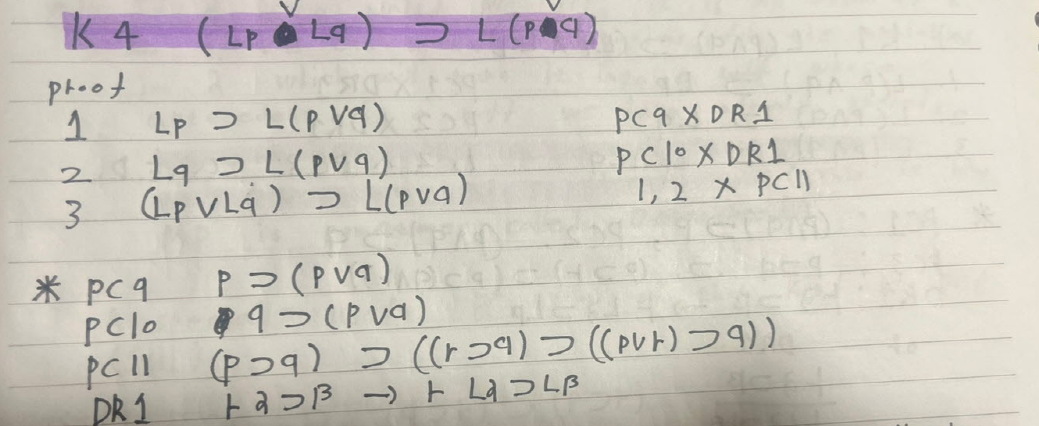 K4 (Lp ∨ Lq) ⊃ L(p ∨ q)
proof
1 Lp ⊃ L(p ∨ q) PC9 × DR1
2 Lq ⊃ L(p ∨ q) PC10 × DR1
3 (Lp ∨ Lq) ⊃ L(p ∨ q) 1, 2 × PC11
* PC9 p ⊃ (p ∨ q)
PC10 q ⊃ (p ∨ q)
PC11 (p ⊃ q) ⊃ ((r ⊃ q) ⊃ ((p ∨ r) ⊃ q))
DR1 ⊢ α ⊃ β → ⊢ Lα ⊃ Lβ